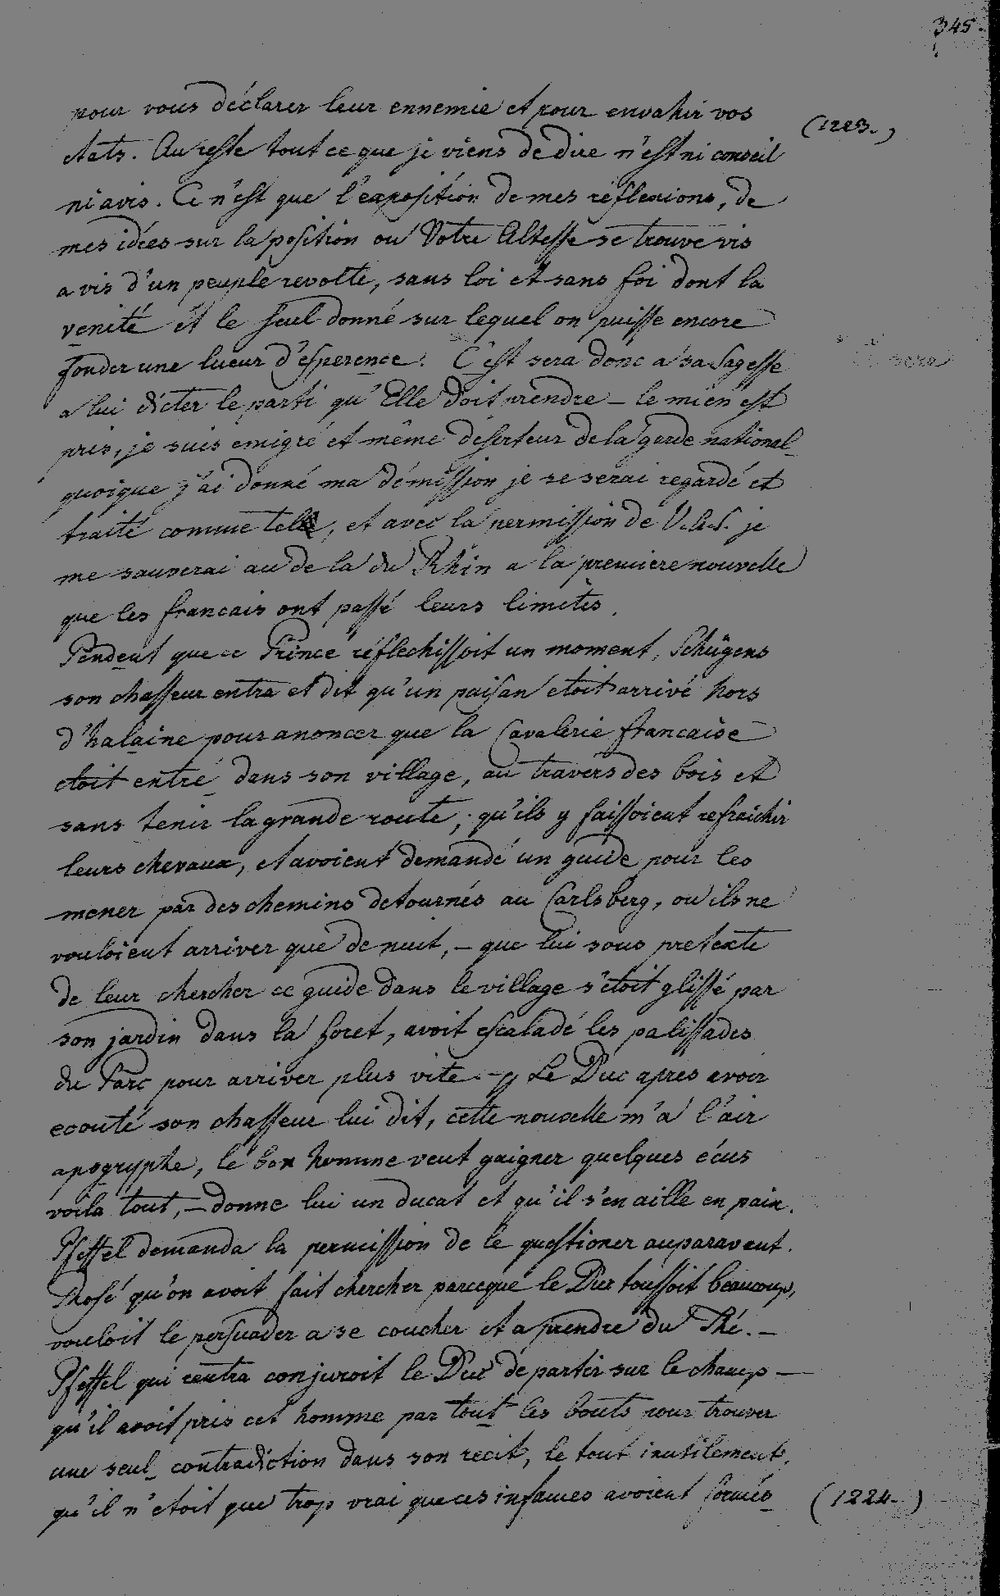 345.
pour vous déclarer leur ennemie et pour envahir vos
(1223.)
etats. Au reste tout ce que je viens de dire n'est ni conseil
ni avis. Ce n'est que l'exposition de mes réflexions, de
mes idées sur la position ou Votre Altesse se trouve vis
a vis d'un peuple revolté, sans loi et sans foi dont la
venité et le seul donné sur lequel on puisse encore
fonder une lueur d'esperence. C'est sera donc a sa Sagesse
sera
a lui dicter le parti qu'Elle doit prendre – le mien est
pris, je suis emigré et même deserteur de la garde national
quoique j'ai donné ma démission je se serai regardé et
traité comme tel, et avec la permission de V.A.S. je
me sauverai au de la du Rhin a la premiere nouvelle
que les francais ont passé leurs limites.
Pendent que ce Prince réflechissoit un moment, Schügens
son chasseur entra et dit qu'un paisan etoit arrivé hors
d'halaine pour anoncer que la Cavalerie francaise
etoit entré dans son village, au travers des bois et
sans tenir la grande route, qu'ils y faissoient refraichir
leurs chevaux, et avoient demandé un guide pour les
mener par des chemins detournés au Carlsberg, ou ils ne
vouloient arriver que de nuit, – que lui sous pretexte
de leur chercher ce guide dans le village s'etoit glissé par
son jardin dans la foret, avoit escaladé les palissades
du Parc pour arriver plus vite. – Le Duc apres avoir
ecouté son chasseur lui dit, cette nouvelle m'a l'air
apogryphe, le bon homme veut gaigner quelques écus
voila tout, – donne lui un ducat et qu'il s'en aille en paix.
Pfeffel demanda la permission de le questioner auparavent.
Rosé qu'on avoit fait chercher parceque le Duc toussoit beaucoup,
vouloit le persuader a se coucher et a prendre du Thé. –
Pfeffel qui rentra conjuroit le Duc de partir sur le champ –
qu'il avoit pris cet homme par tout les bouts pour trouver
une seul contradiction dans son recit, le tout inutilement,
qu'il n'etoit que trop vrai que ces infames avoient formés
(1224.)